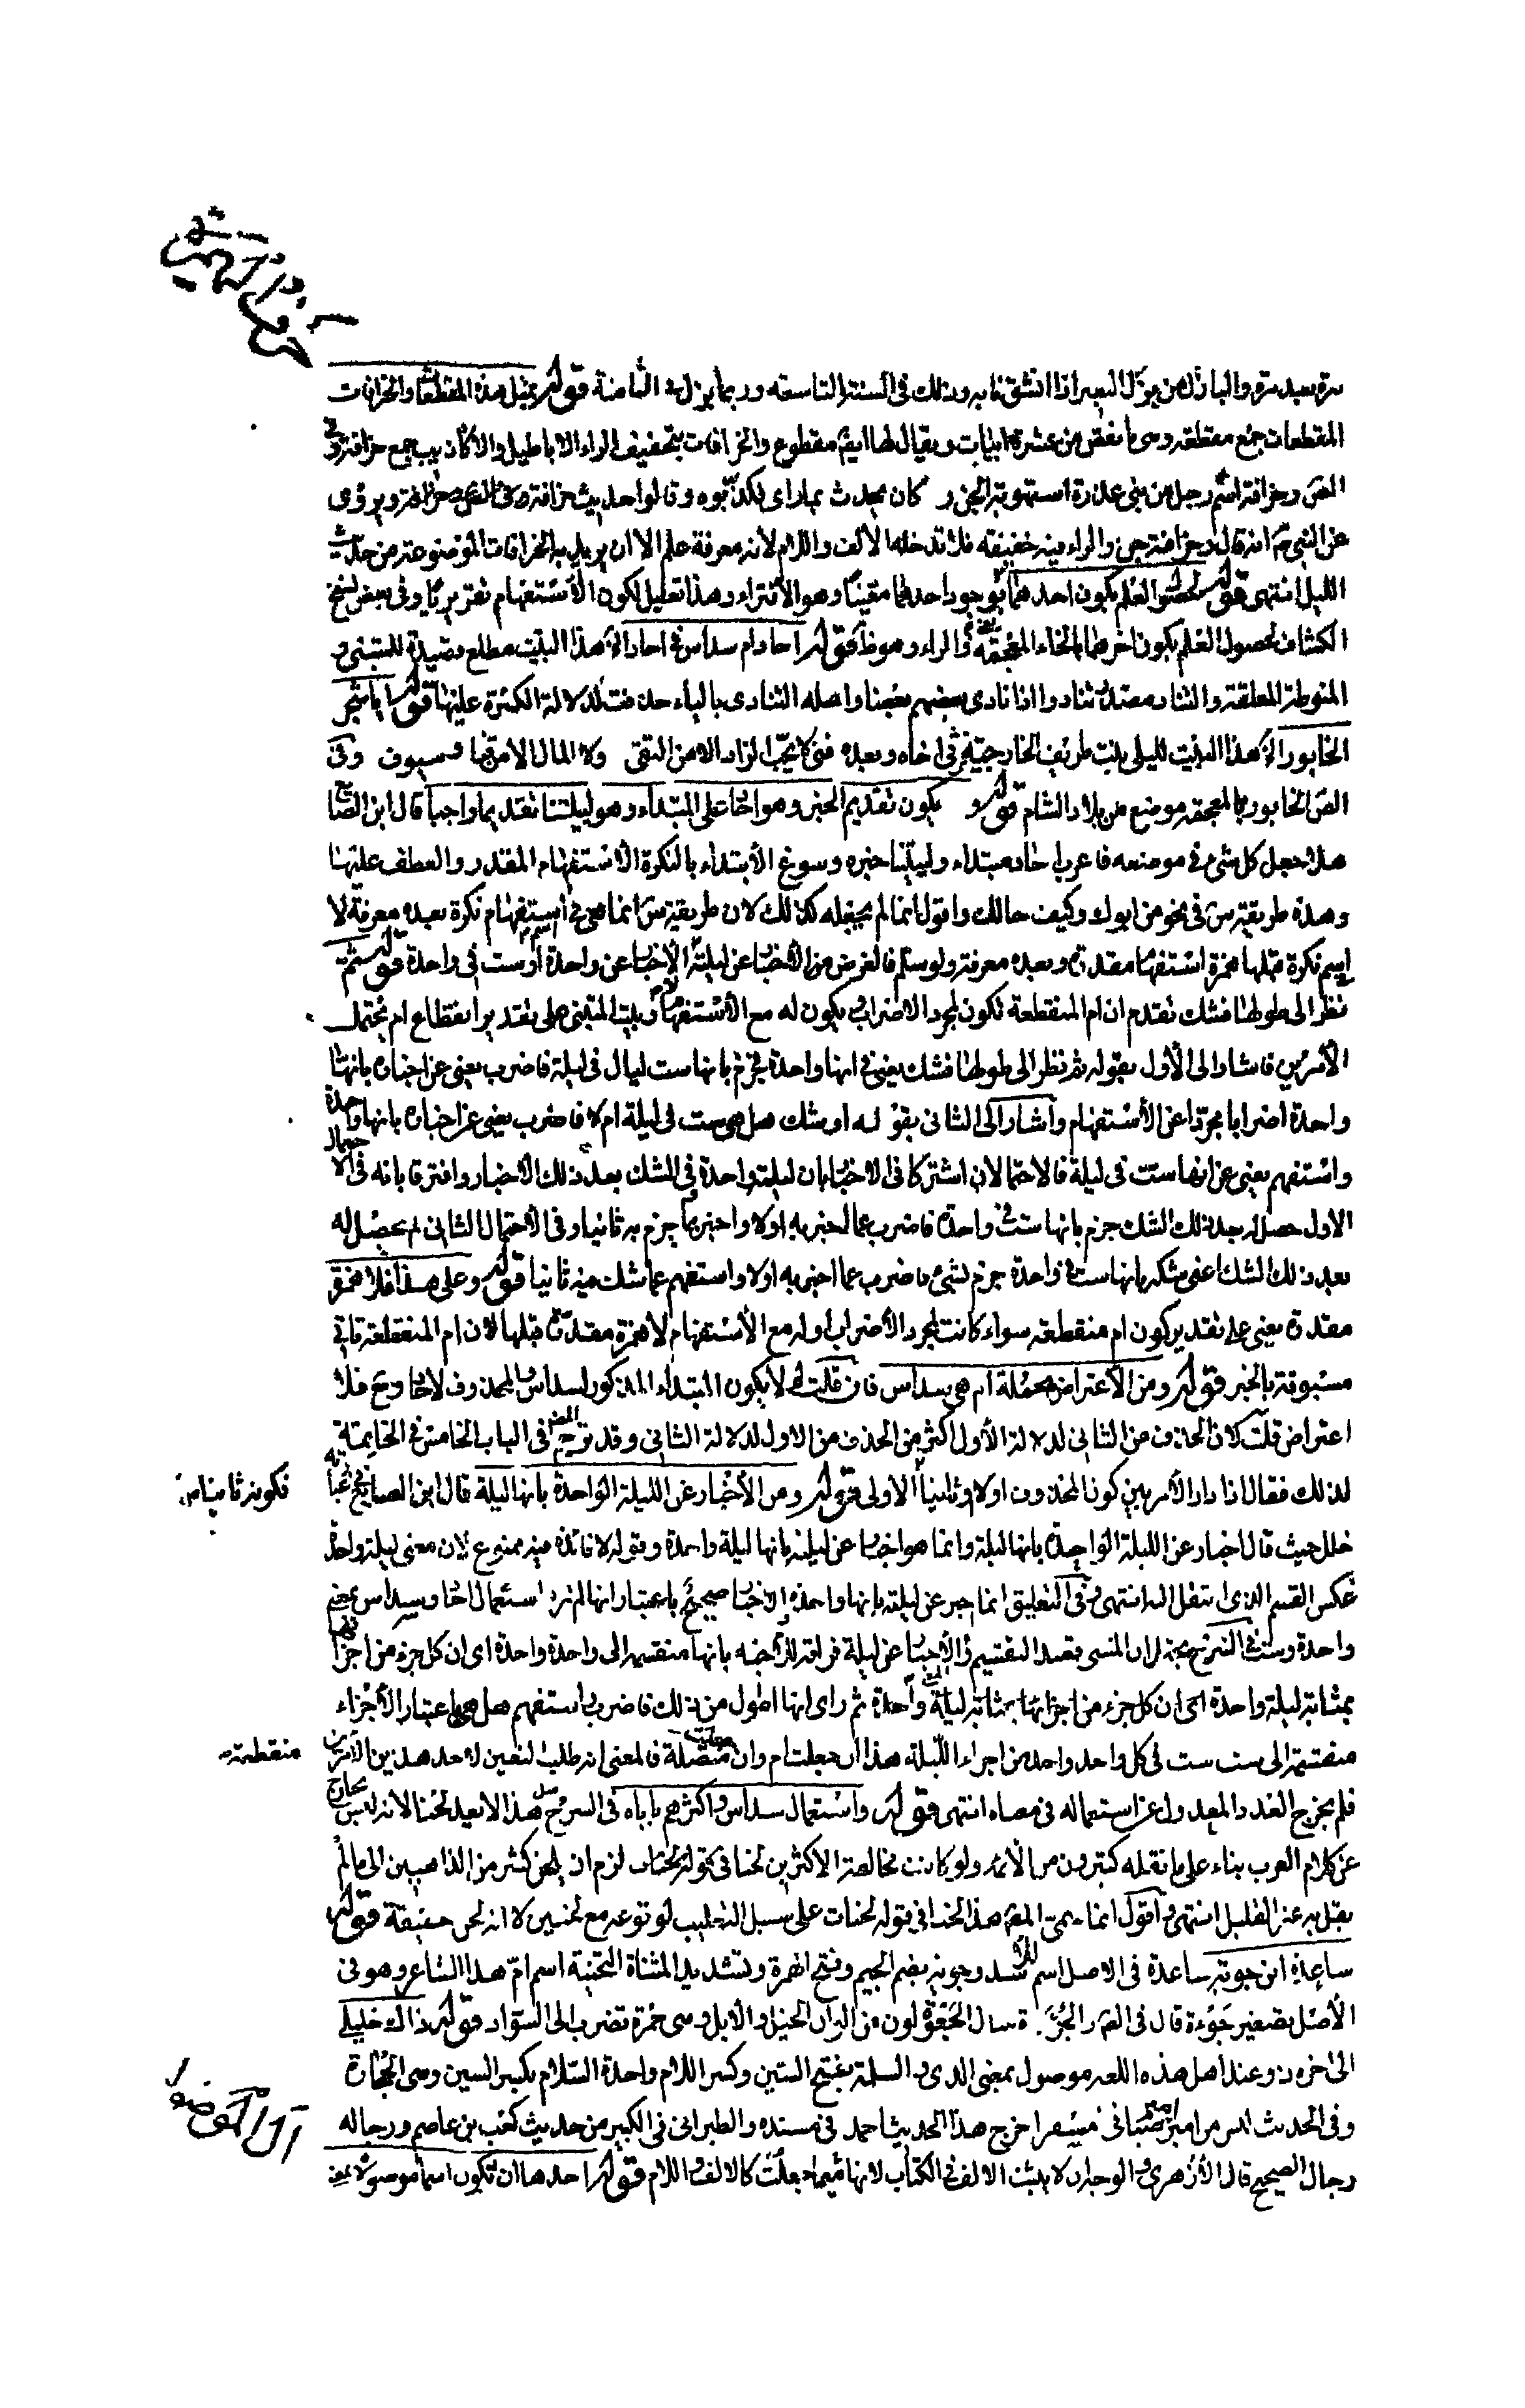 مرة بعد مرة والبازل من بزل البعير اذا انشق نابه وذلك فى السنة التاسعة وربما بزل فى الثامنة قوله بمثل هذه المقطعات والخرافات
المقطعات جمع مقطعه وهى ما نقص من عشرة ابيات ويقال لها ايضم مقطوع والخرافات بتخفيف الراء الاباطيل والاكاذيب جمع خرافة وفى
الص وخرافة اسم رجل من بنى عذرة استهوته الجن و كان يحدث بما راى فكذبوه وقالوا حديث خرافة ويروى
عن النبى انه قال وخرافة حق والراء فيه خفيفه فلا تدخله الالف واللام لانه معرفة علم الا ان يريد به الخرافات الموضوعة من حديث
الليل انتهى قوله لحصول العلم بكون احدهما بوجود احدهما معينا وهو الافتراء وهذا تعليل لكون الاستفهام تقريريا وفى بعض نسخ
الكشاف لحصول العلم بكون اخرهما بالخاء المعجمة والراء وهو ظ قوله احاد ام سداس فى احاد الخ هذا البيت مطلع قصيدة للمتنبى و
المنوطة المعلقة والتناد مصدر تنادوا اذا نادى بعضهم بعضا واصله التنادى بالياء حذفت لدلالة الكسرة عليها قوله ايا شجر
الخابور الخ هذا البيت لليلى بنت طريف الخارجية ترثى اخاه وبعده فتى لا يحب الزاد الا من التقى ولا المال الا من قنا وسيوف وفى
الص الخابور بالمعجمه موضع من بلاد الشام قوله و يكون تقديم الخبر وهو احاد على المبتداء وهو لييلتنا تقديما واجبا قال ابن الصايغ
هذا جعل كل شئ فى موضعه فاعرب احاد مبتداء ولييلتنا خبره وسوغ الابتداء بالنكرة الاستفهام المقدر والعطف عليها
وهذه طريقة س فى نحو من ابوك وكيف حالك واقول انما لم يجعله كذلك لان طريقة س انما هى فى اسم استفهام نكرة بعده معرفة لا
اسم نكرة قبلها همزة استفهام مقدرة وبعده معرفة ولو سلم فالغرض من الاخبار عن ليلته الاخبار عن واحدة او ست فى واحدة قوله ثم
نظر الى طولها فشك تقدم ان ام المنقطعة تكون لمجرد الاضراب ويكون له مع الاستفهام وبيت المتنبى على تقدير انقطاع ام يحتمل
الامرين فاشار الى الاول بقوله ثم نظر الى طولها فشك يعنى فى انها واحدة فجزم بانها ست ليال فى ليلة فاضرب يعنى عن اخباره بانها
واحدة اضرابا مجردا عن الاستفهام واشار الى الثانى بقوله او شك هل هى ست فى ليلة ام لا فاضرب يعنى عن اخباره بانها واحدة
واستفهم يعنى عن انها ست فى ليلة فالاحتمالان اشتركا فى الاخبار بان ليلته واحدة وفى الشك بعد ذلك الاخبار وافترقا بانه فى الاحتمال
الاول حصل له بعد ذلك الشك جزم بانها ست فى واحدة فاضرب عما اخبر به اولا واخبر بما جزم به ثانيا وفى الاحتمال الثانى لم يحصل له
بعد ذلك الشك اعنى شكه بانها ست فى واحدة جزم بشئ فاضرب عما اخبر به اولا واستفهم عما شك فيه ثانيا قوله وعلى هذا فلا همزة
مقدرة يعنى على تقدير كون ام منقطعة سواء كانت لمجرد الاضراب او له مع الاستفهام لا همزة مقدرة قبلها لان ام المنقطعة تاتى
مسبوقة بالخبر قوله ومن الاعتراض بجملة ام هى سداس فان قلت لم لا يكون المبتداء المذكور لسداس والمحذوف لاحاد وح فلا
اعتراض قلت لان الحذف من الثانى لدلالة الاول اكثر من الحذف من الاول لدلالة الثانى وقد ترجم المص فى الباب الخامس فى الخاتمة
لذلك فقال اذا دار الامر بين كون المحذوف اولا وثانيا الاولى قوله ومن الاخبار عن الليلة الواحدة بانها ليلة قال ابن الصايغ فى عبارته
فكونه ثانيا ص
خلل حيث قال اخبار عن الليلة الواحدة بانها ليلة وانما هو اخبار عن ليلته بانها ليلة واحدة وقوله لا فائدة فيه ممنوع لان معنى ليلته واحدة
عكس القسم الذى انتقل اليه انتهى وفى التعليق انما اخبر عن ليلته بانها واحدة والاخبار صحيح باعتبار انها لم ترد استعمال احاد وسداس بمعنى
واحدة وست فى الشرح يجوز ان المتنبى قصد التقسيم والاخبار عن ليلة فراقه لاحبته بانها منقسمة الى واحدة واحدة اى ان كل جزء من اجزائها
بمثابة ليلة واحدة اى ان كل جزء من اجزائها بمثابة ليلة واحدة ثم راى انها اطول من ذلك فاضرب واستفهم هل هى باعتبار الاجزاء
منقسمة الى ست ست فى كل واحد واحد من اجزاء الليلة هذا ان جعلت ام وان جعلت متصلة فالمعنى انه طلب التعيين لاحد هذين الامرين
منقطعة
فلم يخرج العدد المعدول عن استعماله فى معناه انتهى قوله واستعمال سداس واكثرهم ياباه فى الشرح مثل هذا لا يعد لحنا لانه ليس بخارج
عن كلام العرب بناء على ما نقله كثيرون من الائمه ولو كانت مخالفة الاكثرين لحنا فى قوله لحنات لزم ان يلحن كثير من الذاهبين الى ما لم
يقل به غير القليل انتهى واقول انما سمى المص هذا لحنا فى قوله لحنات على سبيل التغليب لوقوعه مع لحنين لا انه لحن حقيقة قوله
ساعدة ابن جوية ساعدة فى الاصل اسم للاسد وجوية بضم الجيم وفتح الهمزة وتشديد المثناة التحتية اسم ام هذا الشاعر وهو فى
الاصل تصغير جؤوة قال فى الص الجؤوة لون من الوان الخيل والابل وهى حمرة تضرب الى السواد قوله ذاك خليلى
الى اخره ذو عند اهل هذه اللغه موصول بمعنى الذى والسلمة بفتح السين وكسر اللام واحدة السلام بكسر السين وهى الحجارة
وفى الحديث ليس من امبر امصيام فى امسفر اخرج هذا الحديث احمد فى مسنده والطبرانى فى الكبير من حديث كعب بن عاصم ورجاله
رجال الصحيح قال الازهرى والوجه ان لا يثبت الالف فى الكتاب لانها ميم جعلت كالالف واللام قوله احدها ان تكون اسما موصولا بمعنى